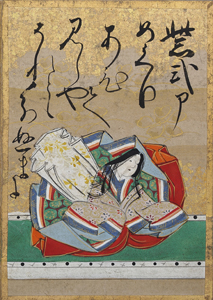 紫式部
めくり
あひて
見しやそ
れとも
わかぬまに